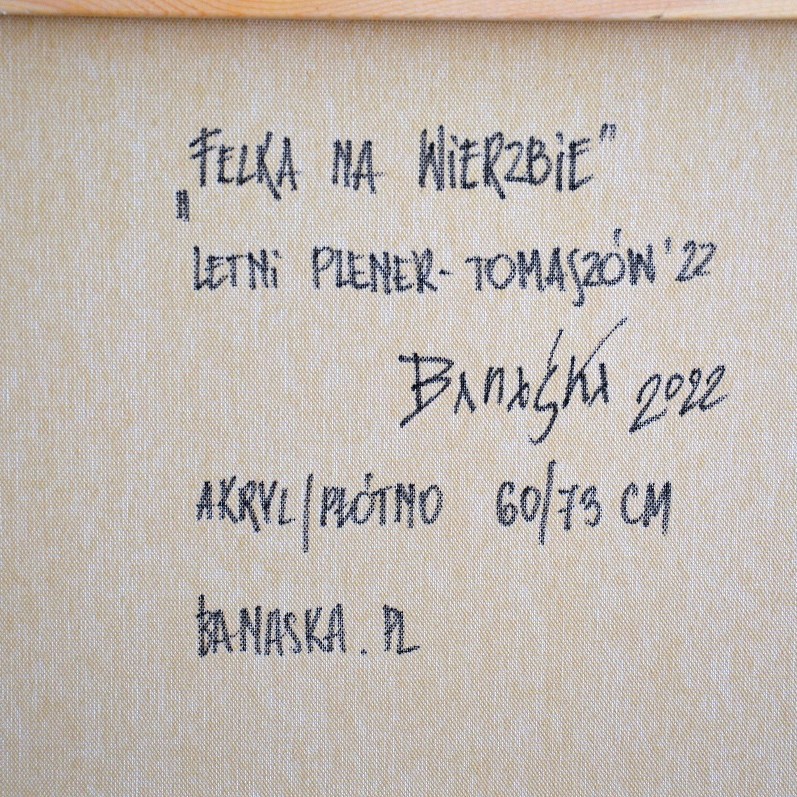 „FELKA NA WIERZBIE”
LETNI PLENER - TOMASZÓW '22
BANAŚKA 2022
AKRYL/PŁÓTNO 60/73 CM
BANASKA.PL